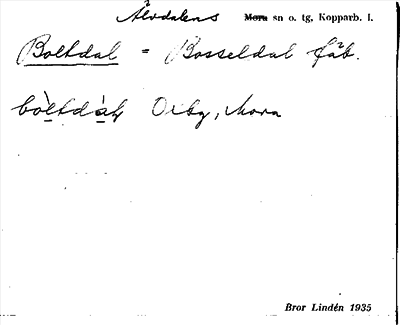 Älvdalens Mora sn o. tg, Kopparb. l.
Boltdal = Bosseldal fäb.
bòltdàḷ Oxby, Mora
Bror Lindén 1935